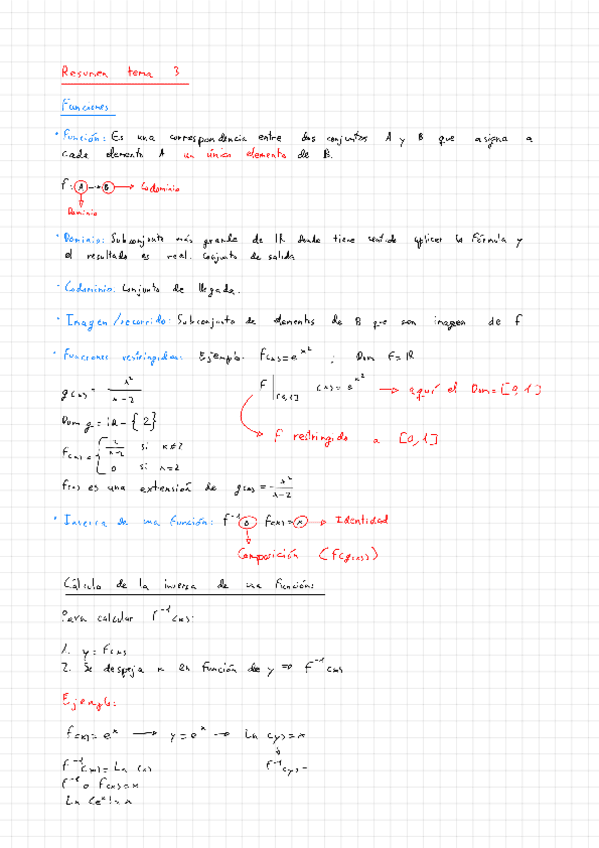 Resumen tema 3
Funciones
· Función: Es una correspondencia entre dos conjuntos A y B que asigna a
cada elemento A un único elemento de B.
f: A → B → Codominio
Dominio
· Dominio: Subconjunto más grande de IR donde tiene sentido aplicar la fórmula y
el resultado es real. Conjunto de salida
· Codominio: Conjunto de llegada.
· Imagen/recorrido: Subconjunto de elementos de B que son imagen de f
· Funciones restringidas: Ejemplo: F(x)=e^x² ; Dom F=IR
g(x) = x²/(x-2)
F|[0,1] (x)=e^x² → aquí el Dom=[0,1]
Dom g = IR-{2}
F restringido a [0,1]
F(x) = { x²/(x-2) si x≠2
0 si x=2
f(x) es una extensión de g(x) = x²/(x-2)
· Inversa de una función: f⁻¹ o F(x)=x → Identidad
Composición (F(g(x)))
Cálculo de la inversa de una función:
Para calcular f⁻¹(x):
1. y=F(x)
2. Se despeja x en función de y ⇒ F⁻¹(x)
Ejemplo:
F(x)=e^x → y=e^x → Ln(y)=x
F⁻¹(x)=Ln(x)
F⁻¹(y)=
F⁻¹ o F(x)=x
Ln(e^x)=x